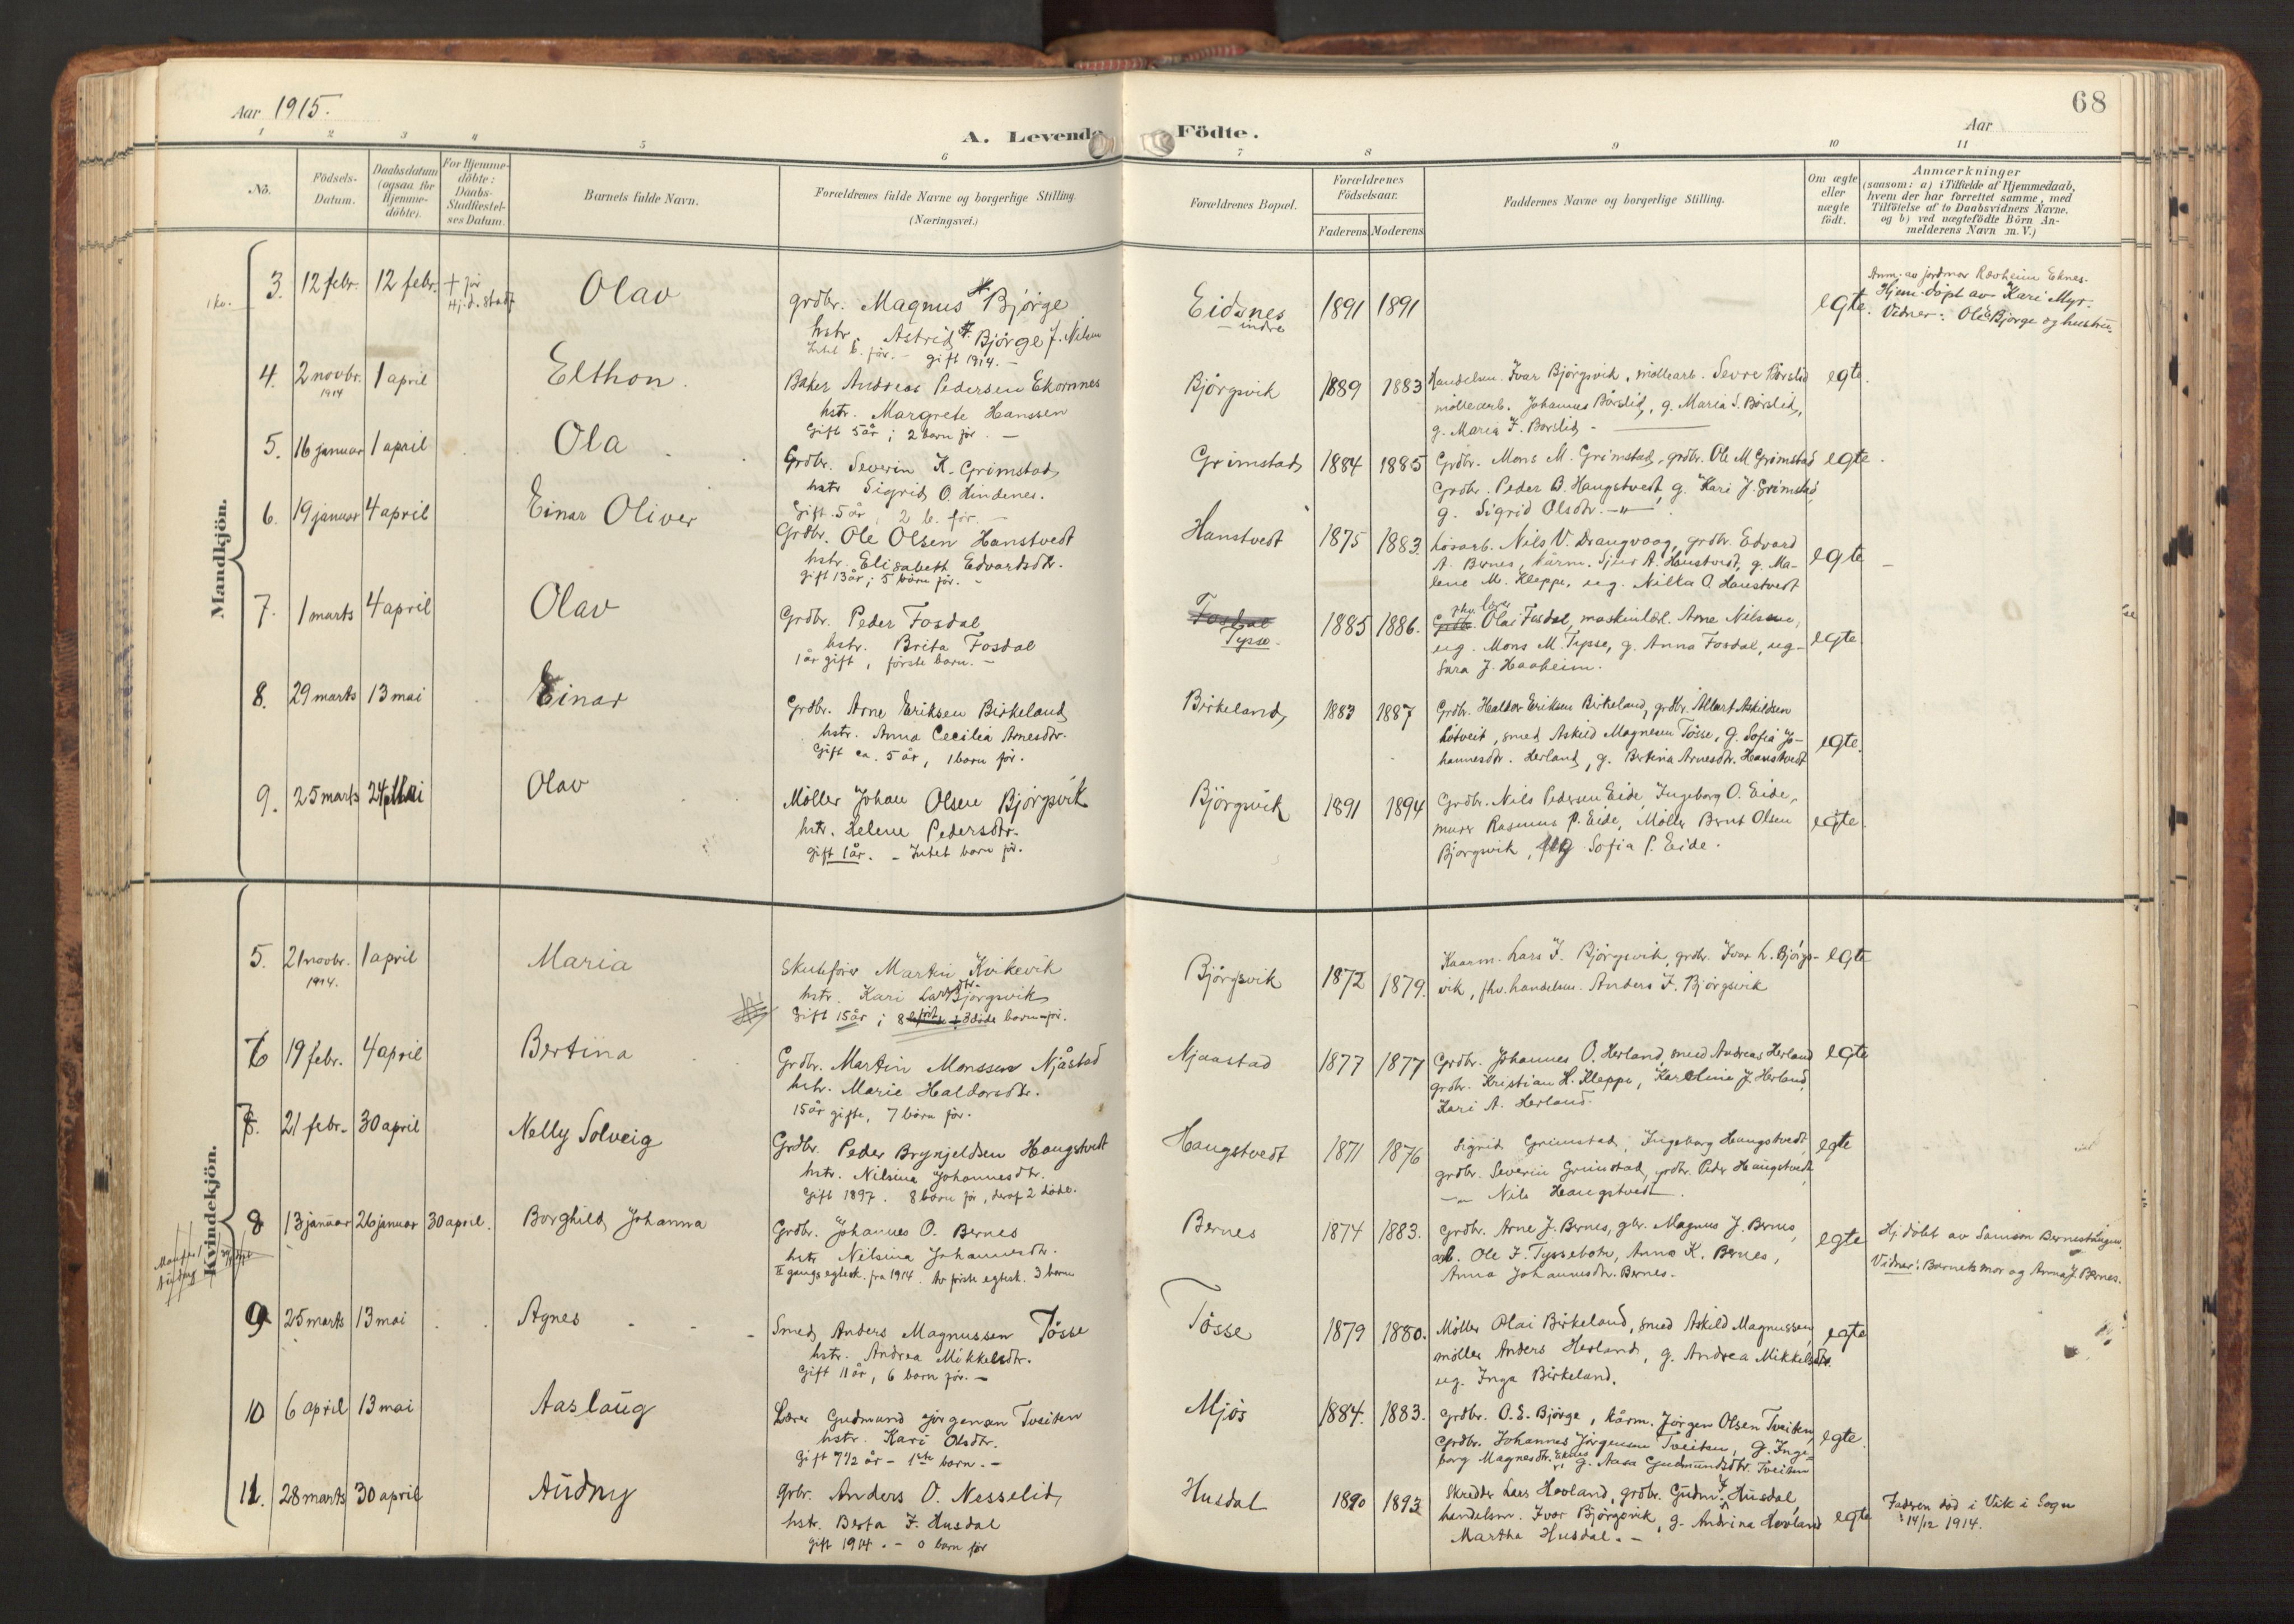 68
Aar 1915.
A. Levende Födte.
Aar
1 2 3 4 5 6 7 8 9 10 11
No.
Födsels-
Datum.
Daabsdatum
(ogsaa for
Hjemme-
döbte).
For Hjemme-
döbte:
Daabs-
Stadfæstel-
ses Datum.
Barnets fulde Navn.
Forældrenes fulde Navne og borgerlige Stilling.
(Næringsvei.)
Forældrenes Bopæl.
Forældrenes
Födselsaar.
Faderens. Moderens.
Faddernes Navne og borgerlige Stilling.
Om ægte
eller
uægte
født.
Anmærkninger
(saasom: a) i Tilfælde af Hjemmedaab,
hvem der har forrettet samme, med
Tilföielse af to Daabsvidners Navne,
og b) ved uægtefödte Börn An-
melderens Navn m. V.)
Mandkjön.
3. 12 febr. 12 febr. + för
Hj.d. stadf
Olav
grdbr. Magnus Bjørge
hstr. Astrid Bjørge f. Nilsen
Intet b. før. - gift 1914. -
Eidsnes
indre
1891 1891
egte.
Anm. av jordmor Ravheim Eknes.
Hjem. döpt av Kari Myr.
Vidner: Ole Bjørge og hustru.
4. 2 novbr. 1 april
1914
Elthon.
Baker Andreas Pedersen Ekornnes
hstr. Margrete Hanssen
Gift 5 år; 2 barn før. -
Bjørgsvik 1889 1883
Handelsm. Ivar Bjørgsvik, møllearb. Sevre Børslid
møllearb. Johannes Børslid, g. Maria S. Børslid,
g. Maria J. Børslid -
egte.
5. 16 januar 1 april
Ola
Grdbr. Severin K. Grimstad
hstr Sigrid O. Hindenes.
Gift 5 år, 2 b. før. -
Grimstad 1884 1885
Grdbr. Mons M. Grimstad, grdbr. Ole M Grimstad
Grdbr. Peder B. Haugstvedt, g. Kari J. Grimstad,
g. Sigrid Olsdtr. -"-
egte.
6. 19 januar 4 april
Einar Oliver
Grdbr. Ole Olsen Hanstvedt
hstr. Elisabeth Edvardsdtr.
gift 13 år; 5 barn før. -
Hanstvedt 1875 1883.
løsarb. Nils V. Drangvaag, grdbr. Edvard
A. Bernes, kårm. Sjur A. Hanstvedt, g. Ma-
lene M. Kleppe, ug. Nilka O. Hanstvedt
egte
7. 1 marts 4 april
Olav
Grdbr. Peder Fosdal
hstr. Brita Fosdal
1 år gift, første barn. -
Fosdal
Tysse.
1885 1886.
Grdbr. Olai Fosdal, maskinlæl. Arne Nilssen,
ug. Mons M. Tysse, g. Anna Fosdal, ug-
Sara J. Haaheim.
egte
8. 29 marts 13 mai
Einar
Grdbr. Arne Eriksen Birkeland
hstr. Anna Cecilia Arnesdtr.
Gift ca. 5 år, 1 barn før.
Birkeland 1883 1887
Grdbr. Haldor Eriksen Birkeland, grdbr. Albert Askildsen
Løtveit, smed Askild Magnesen Tøsse, g. Sofia Jo-
hannesdtr. Herland, g. Bertina Arnesdtr. Hanstvedt
egte.
9. 25 marts 24 Mai
Olav
Møller Johan Olsen Bjørgsvik
hstr. Helene Pedersdtr.
Gift 1 år. - Intet barn før.
Bjørgsvik 1891 1894
Grdbr. Nils Pedersen Eide, Ingeborg O. Eide,
murer Rasmus P. Eide, Møller Bernt Olsen
Bjørgsvik, ug Sofia P. Eide.
egte.
Kvindekjön.
5. 21 novbr. 1 april
1914.
Maria
Skuleförer Martin Kvikevik
hstr. Kari Larsdtr. Bjørgsvik
Gift 15 år; 8 barn før.
Bjørgsvik 1872 1879.
Kaarm. Lars J. Bjørgsvik, grdbr. Ivar L. Bjørgs-
vik, fhv. handelsm. Anders J. Bjørgsvik
egte
6 19 febr. 4 april
Bertina
Grdbr. Martin Monssen Njåstad
hstr. Marie Haldorsdtr.
15 år gifte, 7 barn før.
Njaastad 1877 1877
Grdbr. Johannes O. Herland, smed Andreas Herland
grdbr. Kristian H. Kleppe, Karolina J. Herland,
Kari A. Herland.
egte
7. 21 febr. 30 april
Nelly Solveig
Grdbr. Peder Brynjeldsen Haugstvedt
hstr. Nilsina Johannesdtr.
Gift 1897. 8 barn før, deraf 2 døde.
Haugstvedt 1871 1876
Sigrid Grimstad, Ingeborg Haugstvedt,
grdbr. Severin Grimstad, grdbr. Peder Haugstvedt,
-"- Nils Haugstvedt.
egte
8 13 januar 26 januar 30 april.
Borghild Johanna
Grdbr. Johannes O. Bernes
hstr Nilsina Johannesdtr.
II gangs egtesk. fra 1914. Av første egtesk. 3 barn
Bernes 1874 1883.
Grdbr. Arne J. Bernes, gbr. Magnus J. Bernes,
arb. Ole J. Tyssebotn, Anna K. Bernes,
Anna Johannesdtr. Bernes.
egte
Hj. döbt av Samson Bernestangen.
Vidner: Barnets mor og Anna J. Bernes.
9 25 marts 13 mai
Agnes
Smed Anders Magnussen Tøsse
hstr. Andrea Mikkelsdtr.
Gift 11 år, 6 barn før. -
Tøsse 1879 1880.
Møller Olai Birkeland, smed Askild Magnussen
møller Anders Herland, g. Andrea Mikkelsdtr.
ug. Inga Birkeland.
egte
10 6 april 13 mai
Aaslaug
Lærer Gudmund Jørgensen Tveiten
hstr. Kari Olsdtr.
Gift 7 1/2 år - 1ste barn. -
Mjøs 1884. 1883.
Grdbr. O. E. Bjørge, kårm. Jørgen Olsen Tveiten,
Grdbr. Johannes Jørgensen Tveiten, g. Inge-
borg Magnesdtr. Eknes, g. Aasa Gudmundsdtr. Tveiten
egte.
11. 28 marts 30 april
Audny
Grbr. Anders O. Nesselid
hstr. Berta J. Husdal
gift 1914. - 0 barn før
Husdal 1890 1893
Skrædder Lars Hovland, grdbr. Gudm. J. Husdal,
handelsm. Ivar Bjørgsvik, g. Andrina Hovland
Martha Husdal. -
egte
Faderen død i Vik i Sogn
14/12 1914.